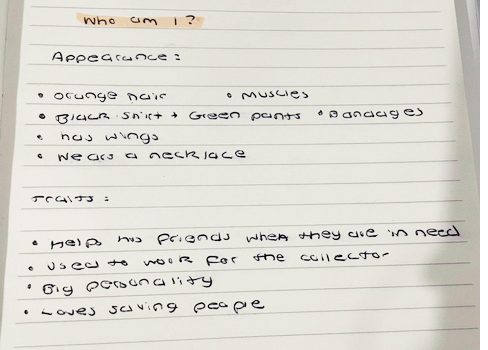 Who am I?
Appearance:
• orange hair • Muscles
• Black shirt + Green pants • Bandages
• has wings
• Wears a necklace
Traits:
• Helps his friends when they are in need
• used to work for the collector
• Big personality
• Loves saving people